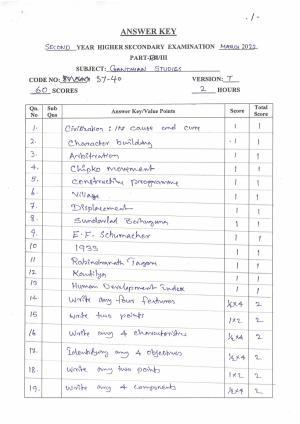 ANSWER KEY
SECOND YEAR HIGHER SECONDARY EXAMINATION MARCH 2022
PART-III
SUBJECT: GANDHIAN STUDIES
CODE NO: 57-40 VERSION: T
60 SCORES 2 HOURS
Qn. No Sub Qus Answer Key/Value Points Score Total Score
1. Civilization: its cause and cure 1 1
2. Character building 1 1
3. Arbitration 1 1
4. Chipko movement 1 1
5. Constructive programme 1 1
6. Village 1 1
7. Displacement 1 1
8. Sundarlal Bahuguna 1 1
9. E.F. Schumacher 1 1
10 1933 1 1
11 Rabindranath Tagore 1 1
12 Kautilya 1 1
13 Human Development Index 1 1
14 Write any four features ½x4 2
15 Write two points 1x2 2
16 Write any 4 characteristics ½x4 2
17. Identifying any 4 objectives ½x4 2
18. Write any two points 1x2 2
19. Write any 4 components ½x4 2